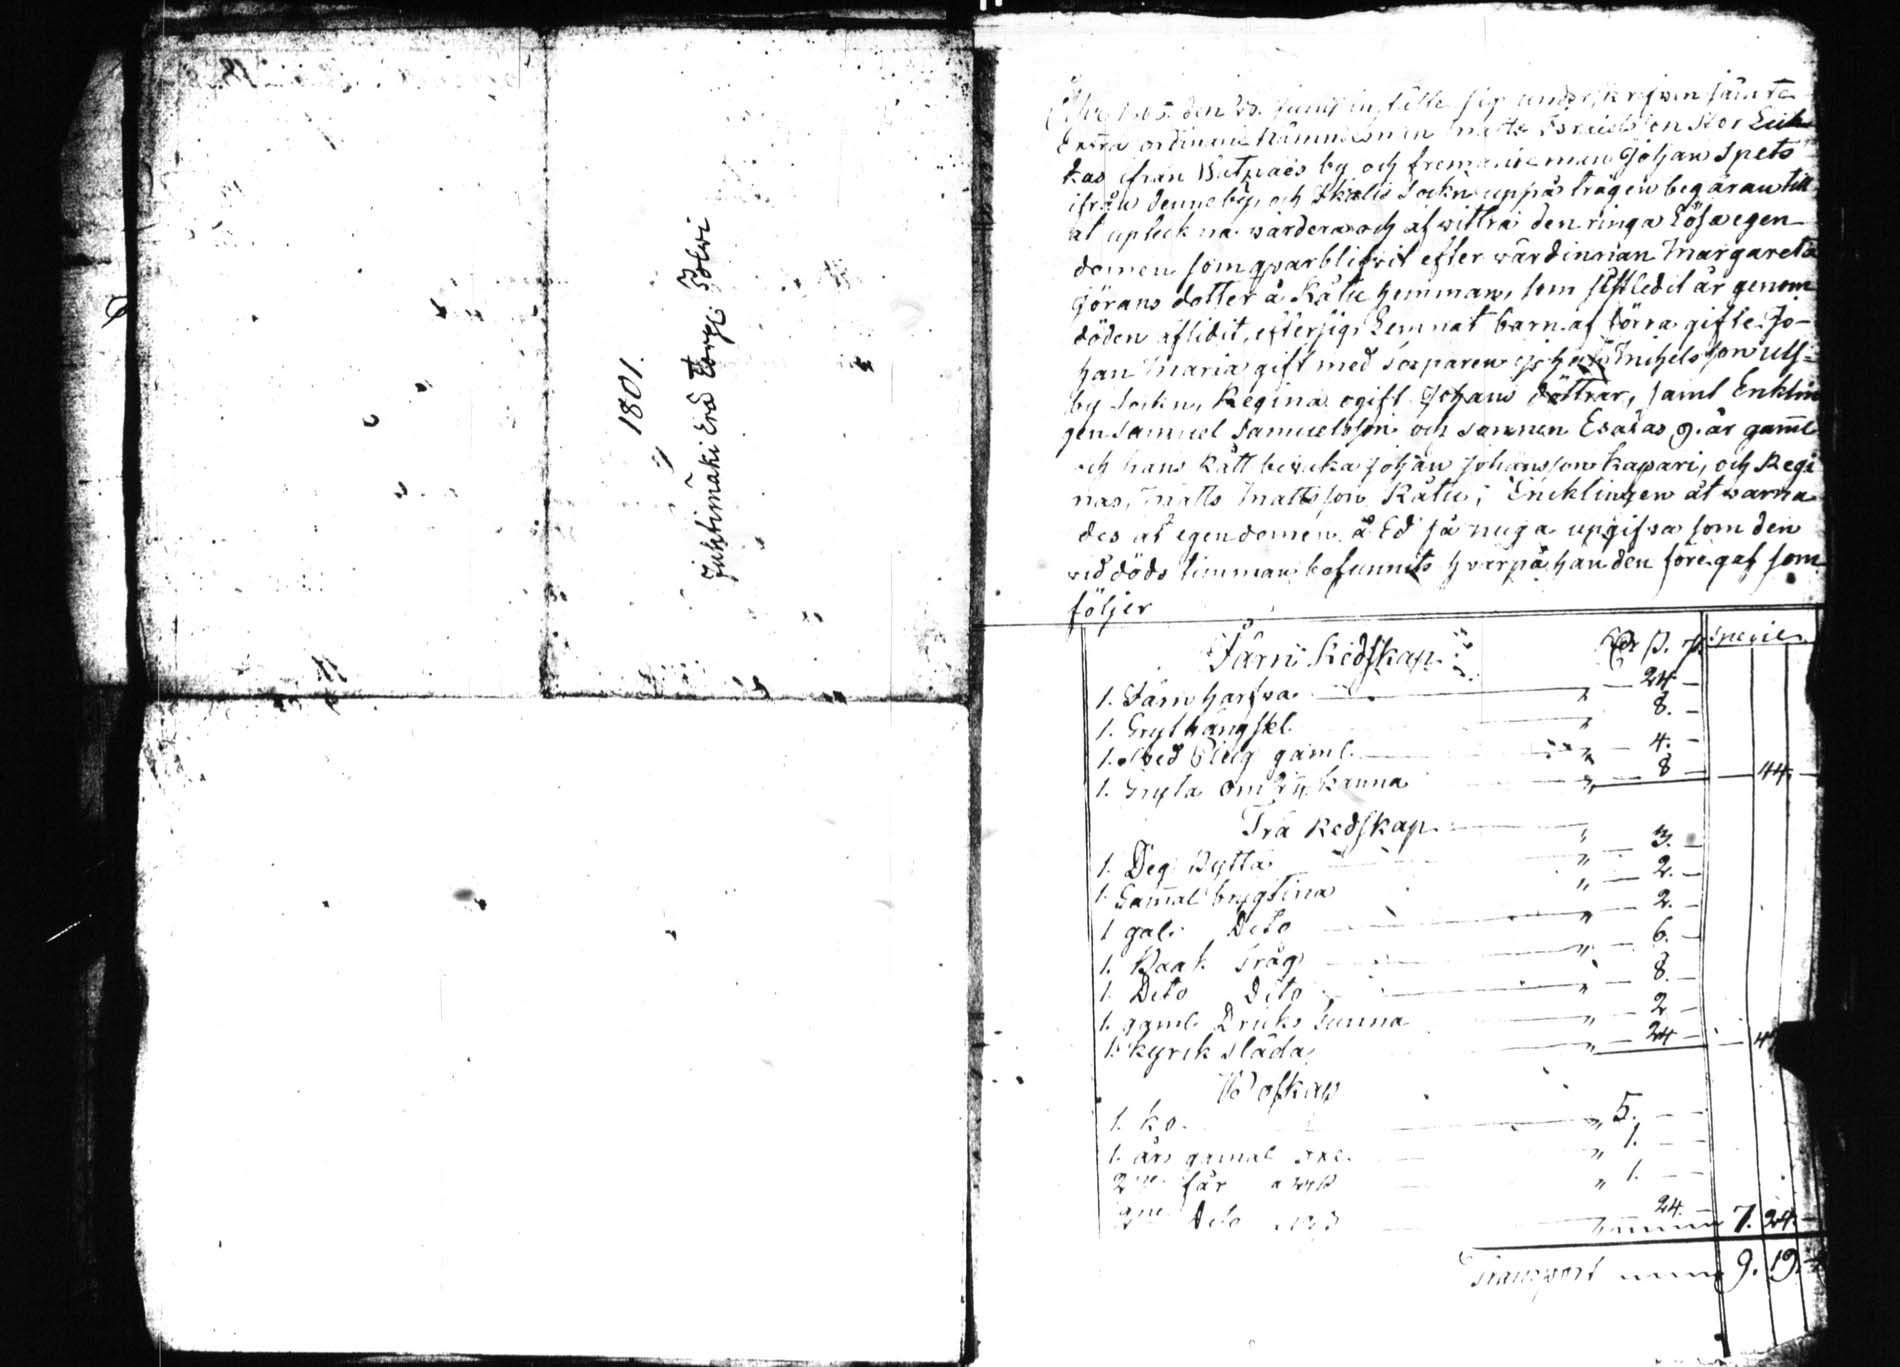 1801.
Juhtimäki Erd Torp. Pölvi
åhr den 23. Junii instälte sig underskrefwen jämte
Extra ordinarie Nämndeman Matts Israelsson Stor
kas ifrån by och Johan Spets
ifrån denne by, och Ikalis Sockn uppå trägen begäran till
at uptekna wärdera och afwittra den ringa lösa egen
domen som qvarblifwit efter wärdinnan Margareta
Görans dotter å Kätu hemman, som sistledit år genom
döden aflidit, efter sig lemnat barn af förra gifte Jo-
han Maria gift med Michelsson Ulfs-
by Sockn, Regina ogift Johans döttrar, samt Enklin
gen Samuel Samuelsson och sonnen Esaias 9. år gaml
och hans Rätt bevaka Johan Johansson Kapari, och Regi
nas, Matts Mattsson Kätu; Encklingen åt warna
des at egendomen å Ed så noga upgifva som den
wid döds timman befunnits hvarpå han den föregaf som
följer
Järn Redskap. Rdr ß. rs Specie
1. Järn harfwa " 24 -
1. Grythängskl " 8. -
1. gaml " 4. -
1. Gryta om kanna " 8 - 44 -
Trä Redskap
1. Deg Bytta " 3. -
1. Gamal brygtina " 2. -
1 gal. Dito " 2. -
1. Baak Tråg " 6. -
1. Dito Dito " 8. -
1. gaml. Dricks tunna " 2 -
1. Kyrik Släda " 24 -
Bofskap
1. Ko " 5. - -
1. års gamal " 1. - -
2ne får " 1. - -
2ne Dito 24. - 7. 24. -
Transport 9. 19.